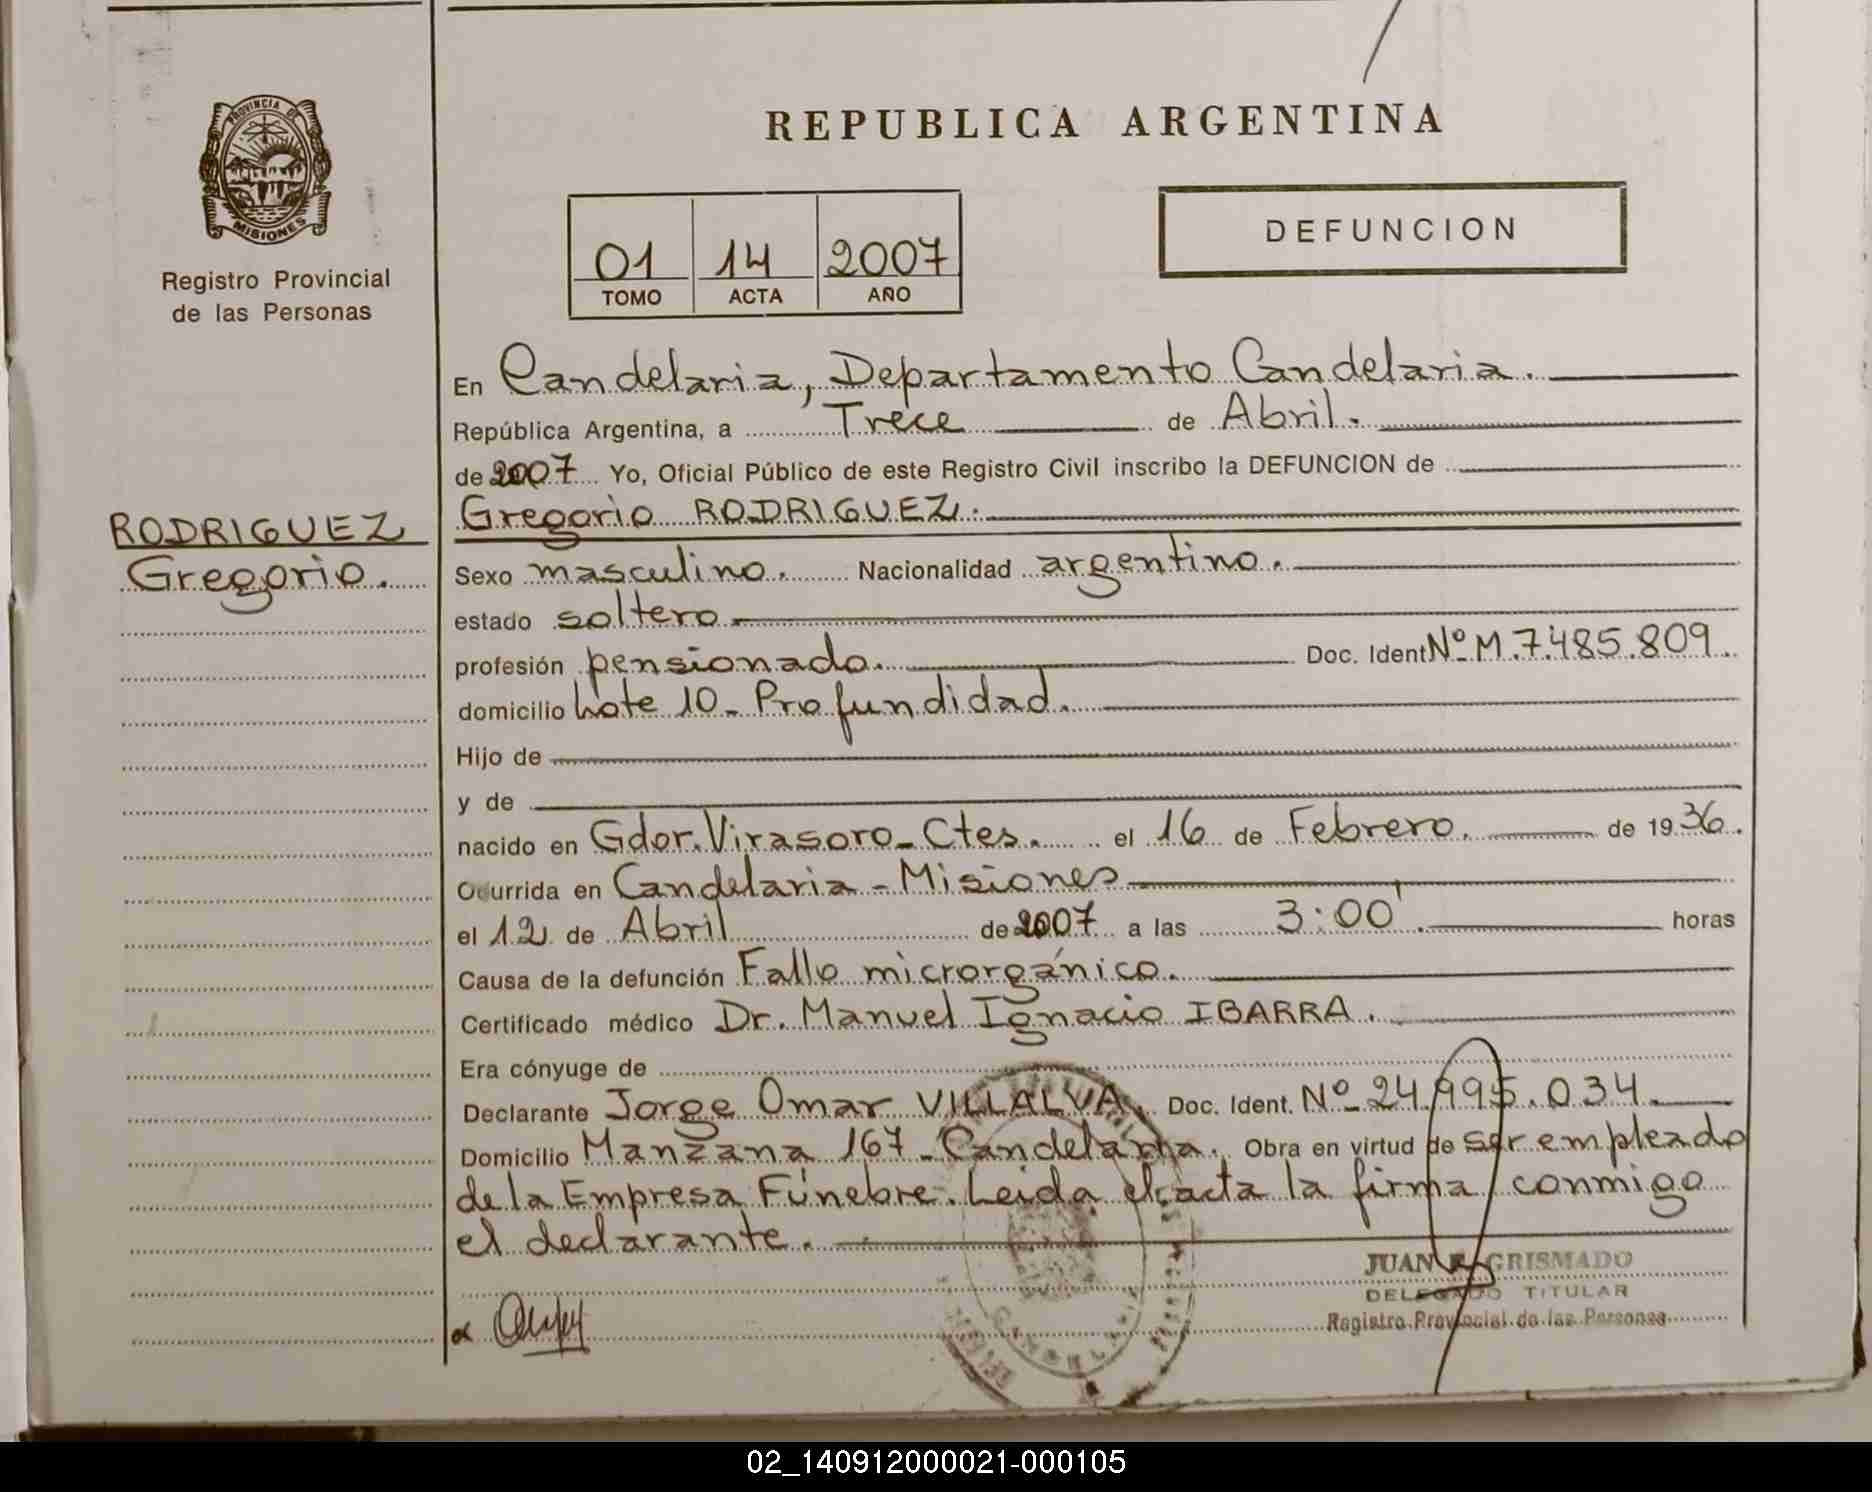 REPUBLICA ARGENTINA
PROVINCIA DE
MISIONES
Registro Provincial
de las Personas
01 14 2007
TOMO ACTA AÑO
DEFUNCION
En Candelaria, Departamento Candelaria.
República Argentina, a Trece de Abril.
de 2007 Yo, Oficial Público de este Registro Civil inscribo la DEFUNCION de
RODRIGUEZ
Gregorio.
Gregorio RODRIGUEZ.
Sexo masculino. Nacionalidad argentino.
estado soltero
profesión pensionado. Doc. Ident Nº M.7.485.809.
domicilio Lote 10_ Profundidad.
Hijo de
y de
nacido en Gdor. Virasoro_ Ctes. el 16 de Febrero. de 1936.
Ocurrida en Candelaria - Misiones
el 12 de Abril de 2007 a las 3:00'. horas
Causa de la defunción Fallo microrgánico.
Certificado médico Dr. Manuel Ignacio IBARRA.
Era cónyuge de
Declarante Jorge Omar VILLALVA. Doc. Ident. Nº 24.995.034.
Domicilio Manzana 167_ Candelaria. Obra en virtud de ser empleado
de la Empresa Fúnebre. Leida el acta la firma conmigo
el declarante.
JUAN GRISMADO
DELEGADO TITULAR
Registro Provincial de las Personas
02_140912000021-000105